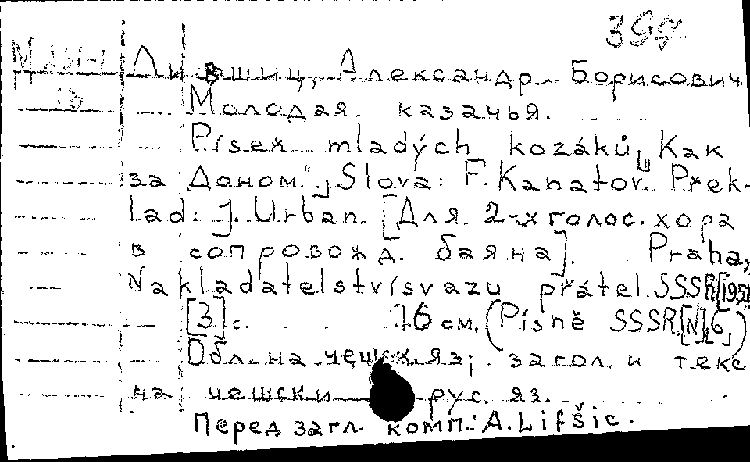 Лившиц, Александр Борисович
Молодая казачья.
Píseň mladých kozáků „Как
за Доном“, Slova: F. Kanatov. Přek-
lad: J. Urban. [Для 2-х голос. хора
в сопровожд. баяна]. Praha,
Nakladatelství svazu přátel SSSR [195
[3] с. 16 см. (Písně SSSR [N] 6)
Обл. на чешск яз; загол. и текс
на чешск и рус. яз.
Перед загл. комп.: A. Lifšic.